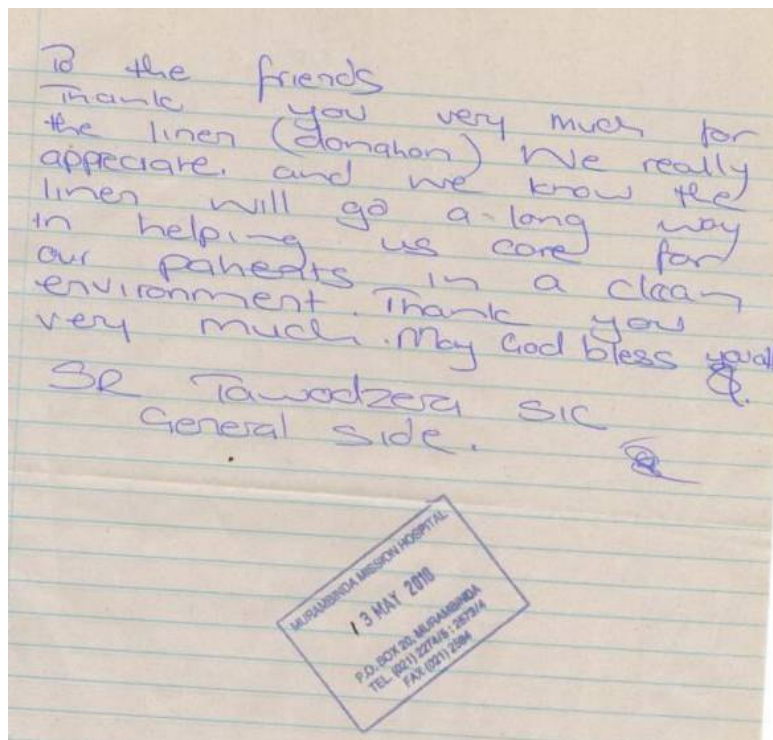 To the friends
Thank you very much for
the linen (donation) We really
appeciate. and we know the
linen will go a long way
in helping us care for
our patients in a clean
environment. Thank you
very much. May God bless you all
SR Tawodzera SIC
General Side.
MURAMBINDA MISSION HOSPITAL
13 MAY 2010
P.O. BOX 20, MURAMBINDA
TEL. (021) 2274/5 ; 2673/4
FAX (021) 2584